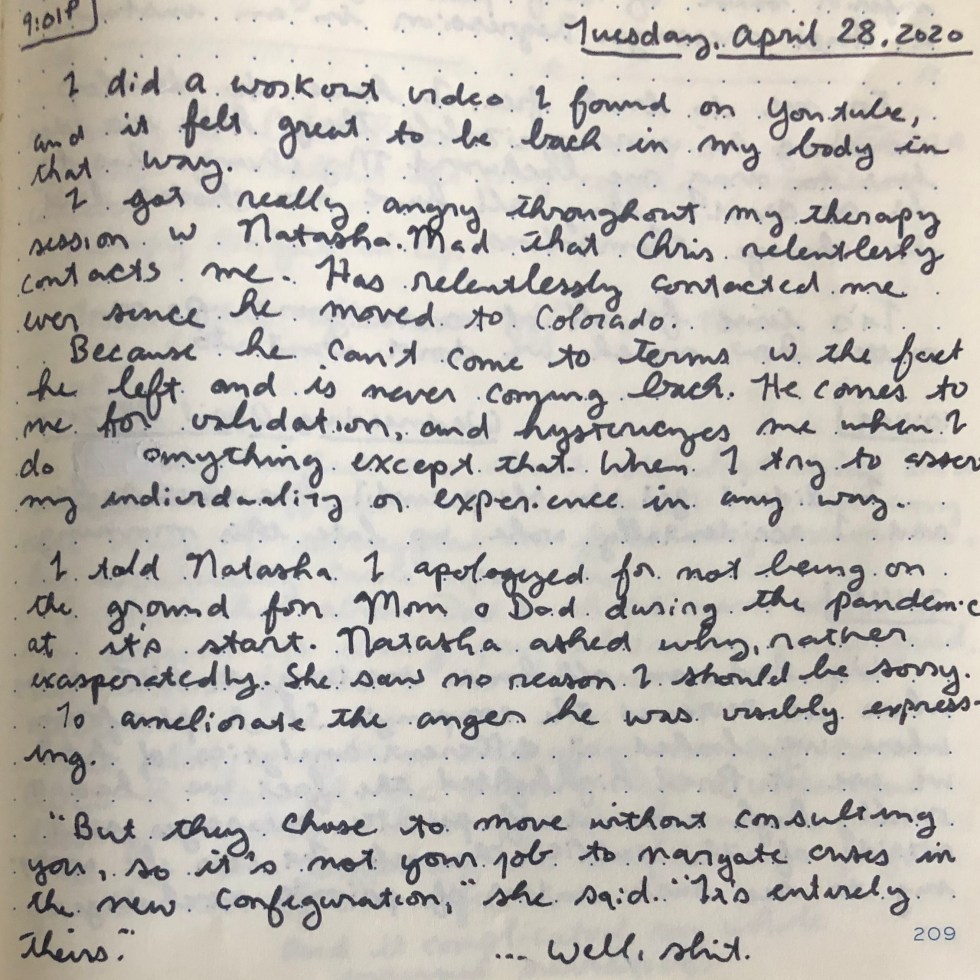 9:01P
Tuesday, April 28, 2020
I did a workout video I found on Youtube,
and it felt great to be back in my body in
that way.
I got really angry throughout my therapy
session w Natasha. Mad that Chris relentlessly
contacts me. Has relentlessly contacted me
ever since he moved to Colorado.
Because he can't come to terms w the fact
he left and is never coming back. He comes to
me for validation, and hystericizes me when I
do anything except that. When I try to asser
my individuality or experience in any way.
I told Natasha I apologized for not being on
the ground for Mom & Dad during the pandemic
at it's start. Natasha asked why, rather
exasperatedly. She saw no reason I should be sorry.
To ameliorate the anger he was visibly express-
ing.
"But they chose to move without consulting
you, so it's not your job to navigate crises in
the new configuration," she said. "It's entirely
theirs."
... Well, shit.
209